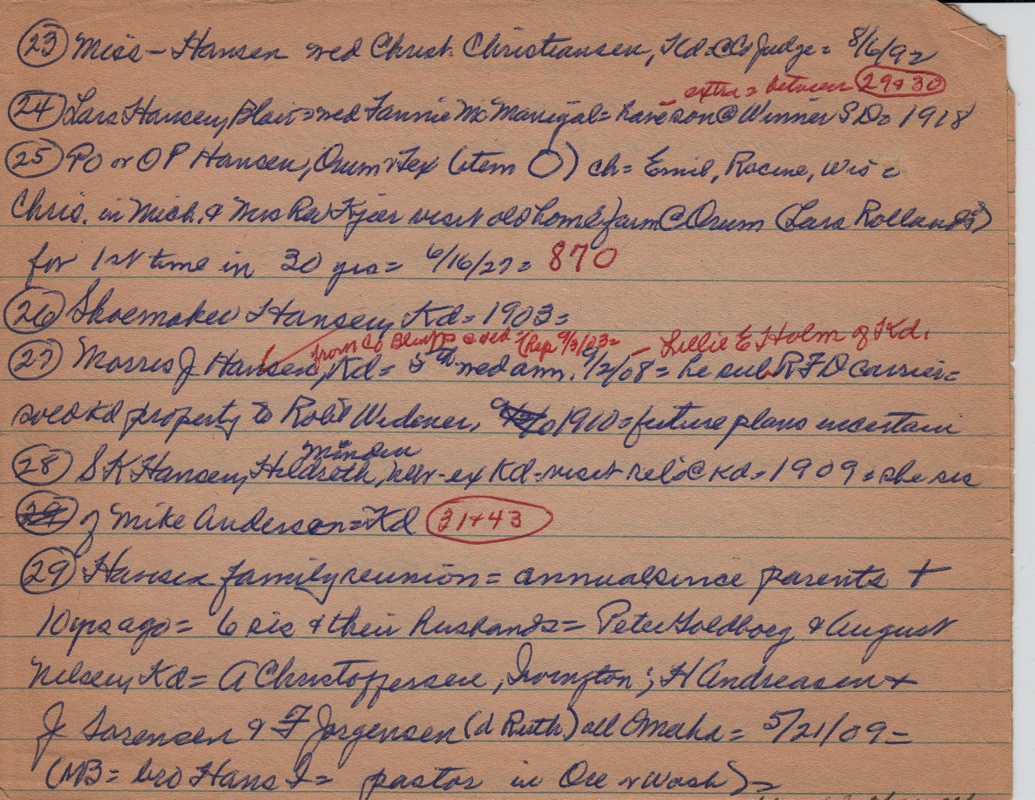 (23) Miss – Hansen wed Christ. Christiansen, Kd. Co Judge = 8/6/92
extra = between (29+30)
(24) Lars Hansen, Blair = wed Fannie McManigal = have son @ Winner SD = 1918
(25) PO or OP Hansen, Orum & Tex (item O) ch = Emil, Racine, Wis =
Chris. in Mich. & Mrs Rev Kjer visit old home farm @ Orum (Lars Rollands)
for 1st time in 30 yrs = 6/16/27 = 870
(26) Shoemaker Hansen, Kd = 1903 =
from Co Bluffs wed (Rep 9/3/03 = – Lillie E Holm of Kd.
(27) Morris J Hansen, Kd = 5th wed ann. 9/2/08 = he sub RFD carrier =
sold Kd property to Robt Widener, 1910 = future plans uncertain
Minden
(28) S K Hansen, Hildreth, nebr - ex Kd - visit rels @ Kd = 1909 = she sis
of Mike Anderson = Kd (31+43)
(29) Hansen family reunion = annual since parents +
10 yrs ago = 6 sis & their husbands = Peter Goldboeg & August
Nielsen, Kd = A Christoffersen, Irvington ; H Andreasen +
J Sorensen & F Jorgensen (d Ruth) all Omaha = 5/21/09 =
(NB = bro Hans I = pastor in Ore or Wash) =